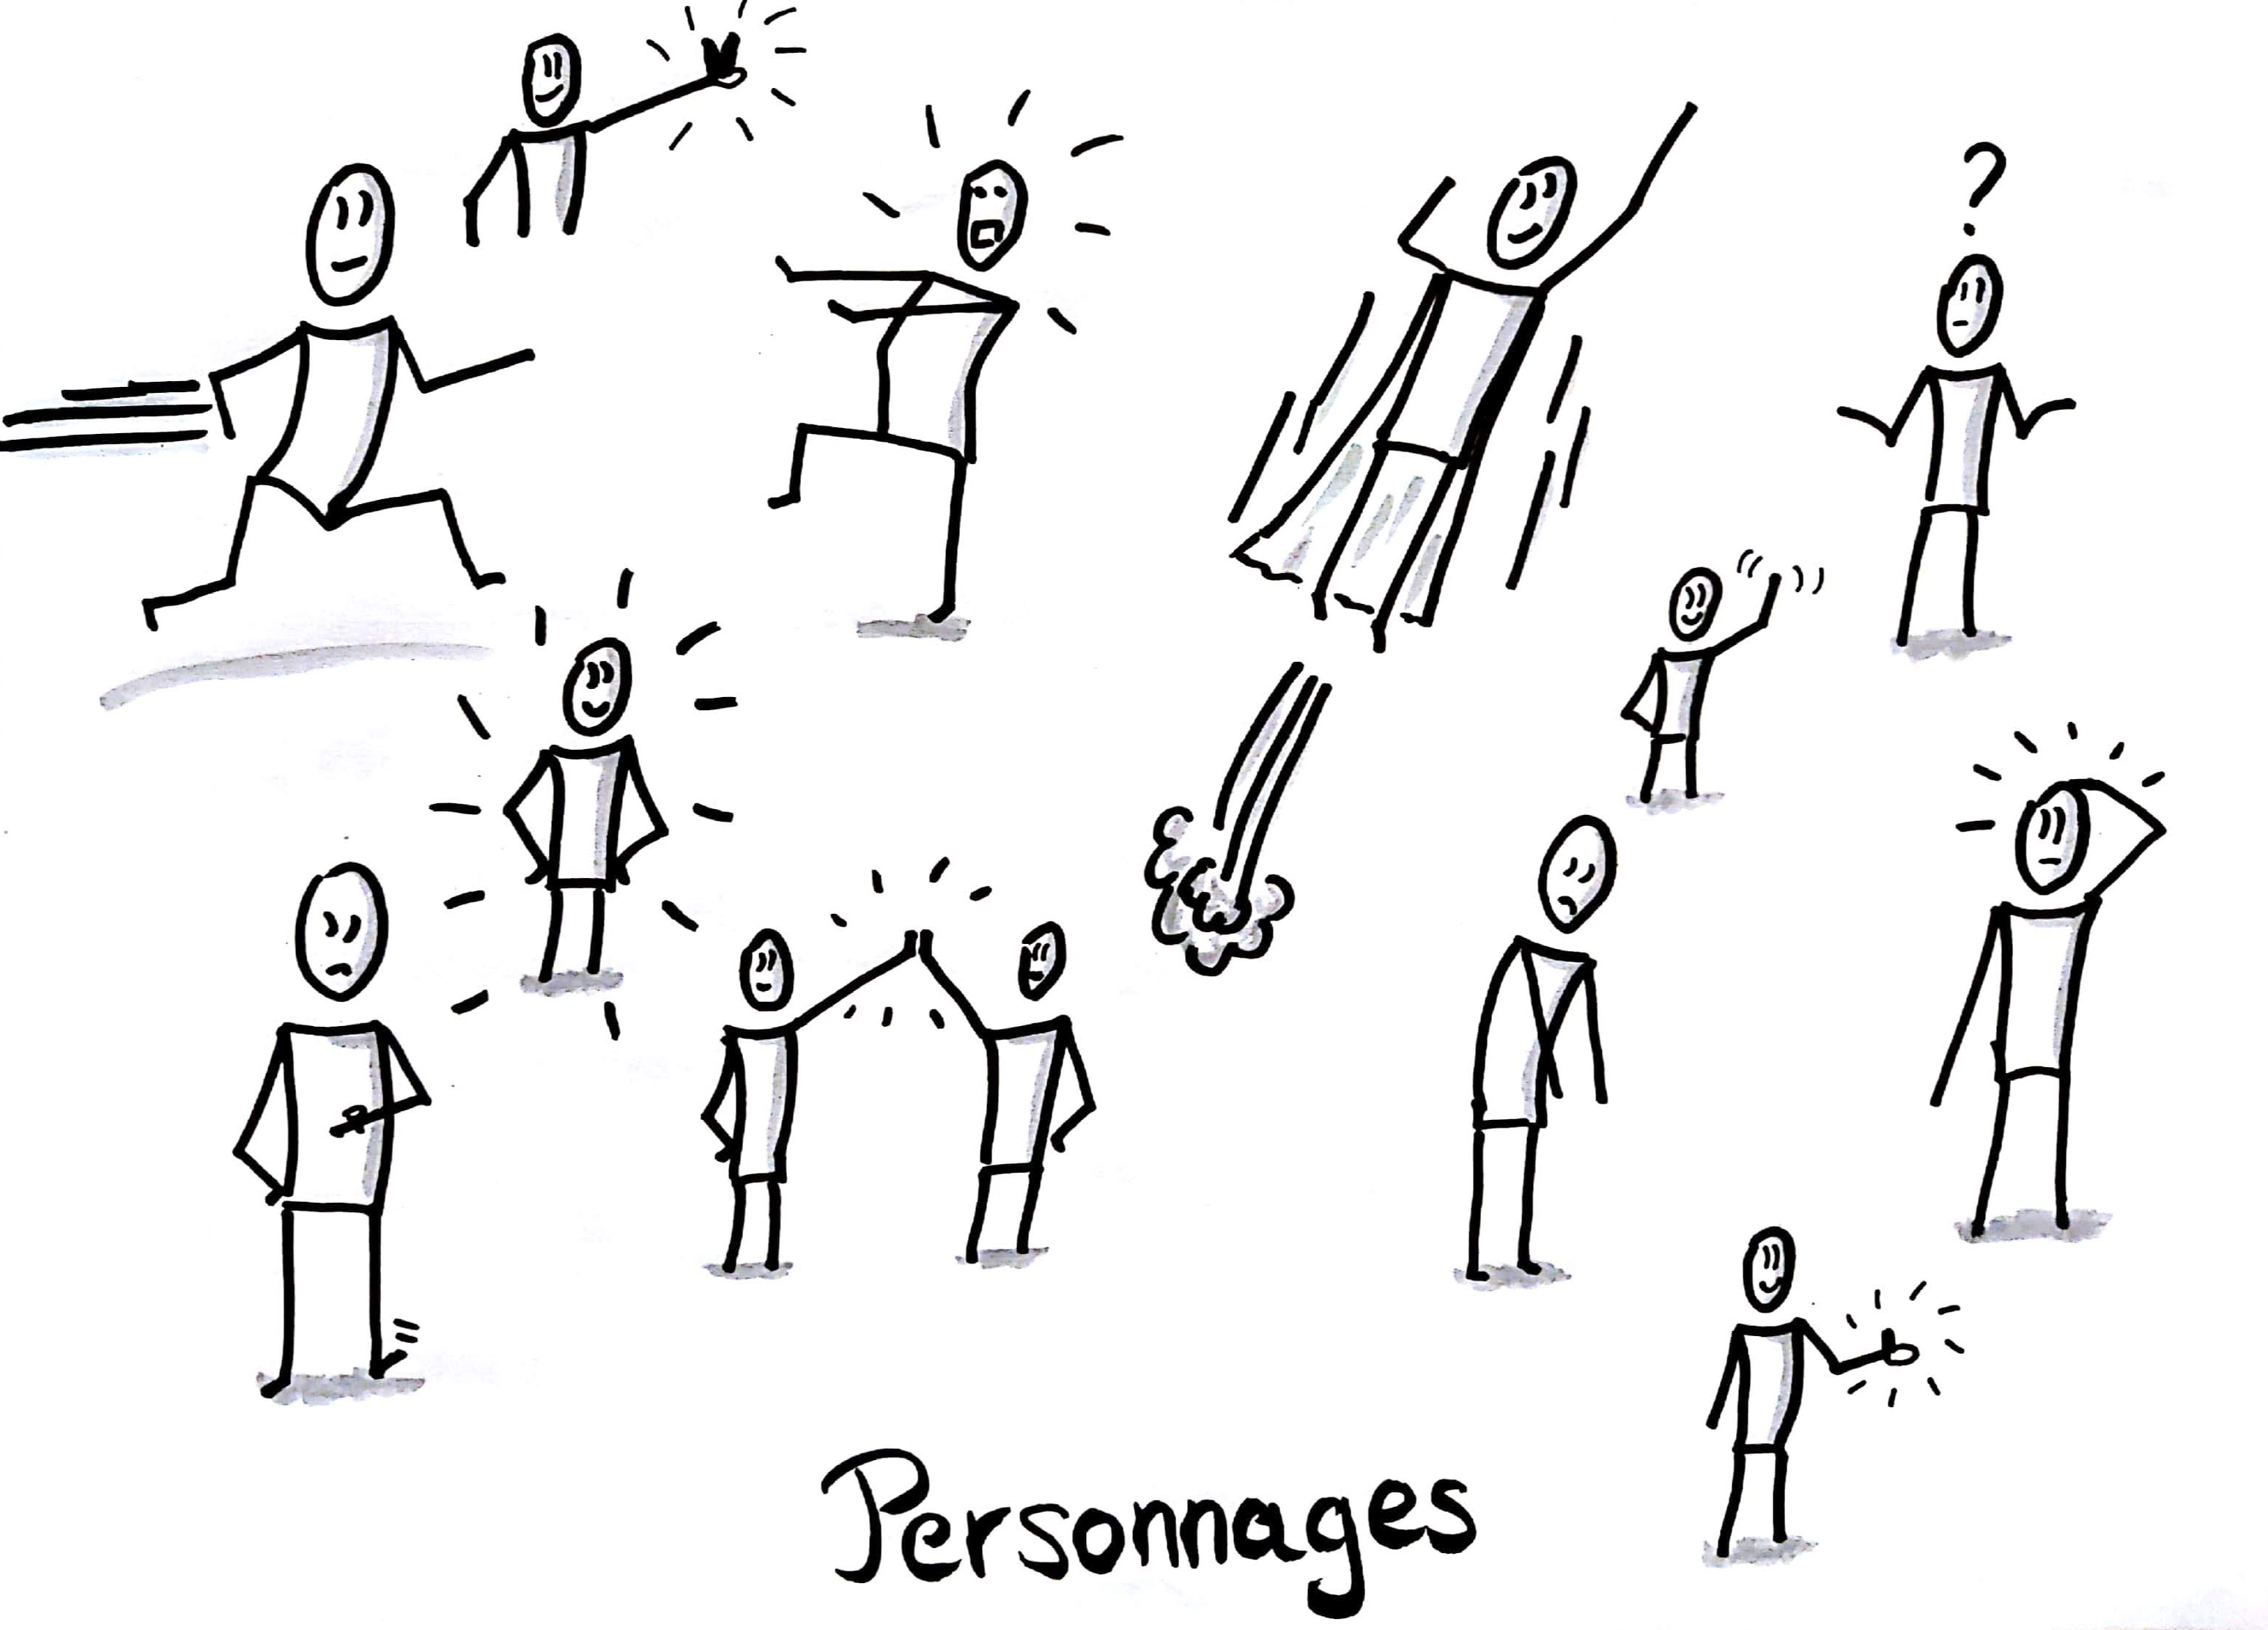 ?
Personnages